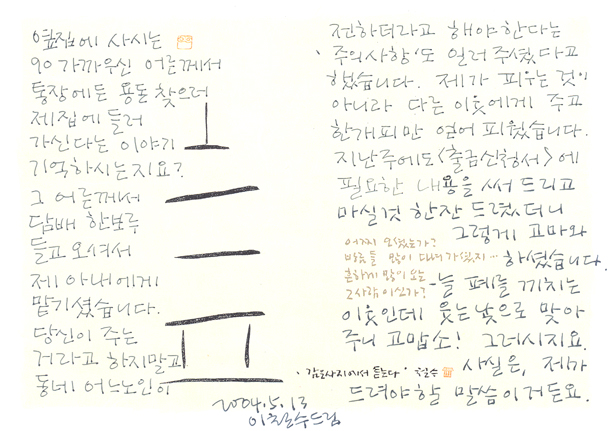 옆집에 사시는
90 가까우신 어른께서
통장에든 용돈 찾으러
제집에 들러
가신다는 이야기
기억하시는지요?
그 어른께서
담배 한보루
들고 오셔서
제 아내에게
맡기셨습니다.
당신이 주는
거라고 하지말고
동네 어느노인이
2004.5.13
이철수드림
전하더라고 해야한다는
'주의사항'도 일러 주셨다고
했습니다. 제가 피우는 것이
아니라 다른 이웃에게 주고
한개피만 얻어 피웠습니다.
지난주에도 <출금신청서>에
필요한 내용을 써 드리고
마실것 한잔 드렸더니
그렇게 고마와
하셨습니다.
어찌 오셨는가?
바람들 많이 다녀가셨지…
흔하게 많이 오는
그사람이신가?
-늘 폐를 끼치는
이웃인데 웃는 낯으로 맞아
주니 고맙소! 그러시지요.
·감은사지에서 듣는다· 철수
사실은, 제가
드려야할 말씀이거든요.